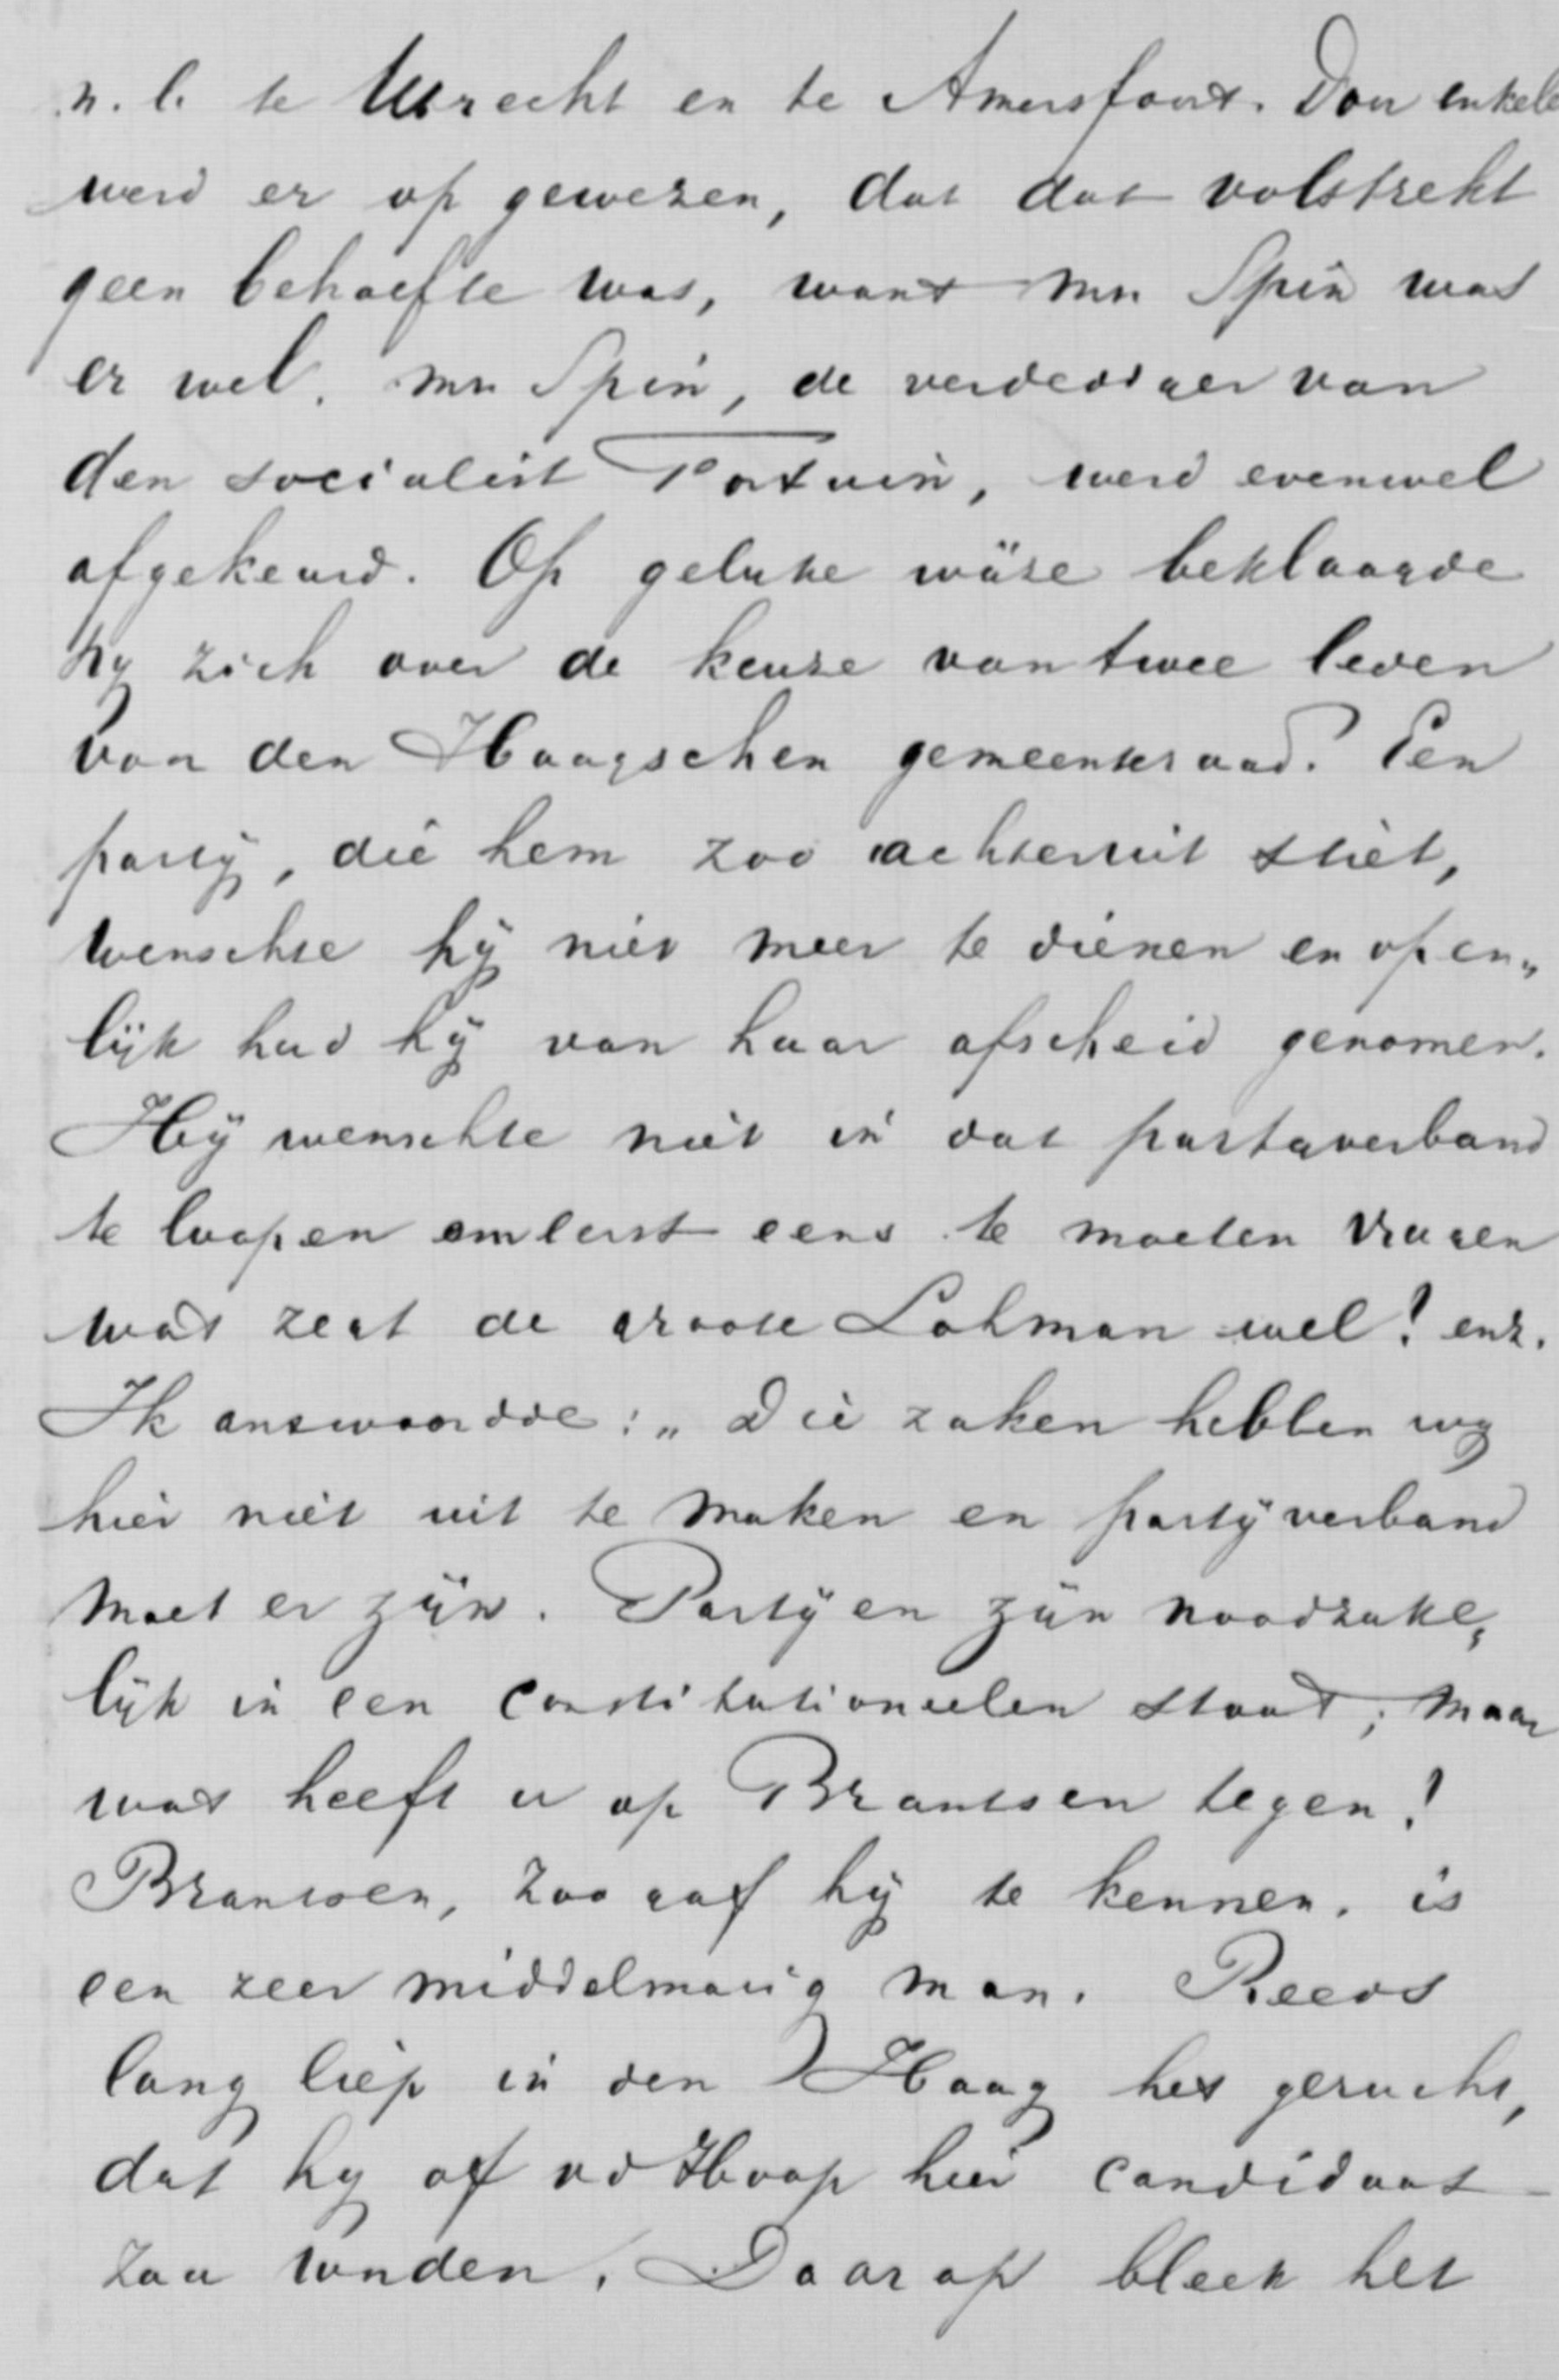 n.l. te Utrecht en te Amersfoort. Door enkele
werd er op gewezen, dat dat volstrekt
geen behoefte was, want mr Spin was
er wel. mr Spin, de verdediger van
den socialist Fortuin, werd evenwel
afgekeurd. Op gelijke wijze beklaagde
hij zich over de keuze van twee leden
van den Haagschen gemeenteraad. Een
partij, die hem zoo achteruit stiet,
wenschte hij niet meer te dienen en open„
lijk had hij van haar afscheid genomen.
Hij wenschte niet in dat partijverband
te loopen om eerst eens te moeten vragen
wat zegt de groote Lohman wel! enz.
Ik antwoordde: „Die zaken hebben wij
hier niet uit te maken en partijverband
moet er zijn. Partijen zijn noodzake„
lijk in een constitutioneelen staat; maar
wat heeft u op Brantsen tegen!
Brantsen, zoo gaf hij te kennen, is
een zeer middelmatig man. Reeds
lang liep in den Haag het gerucht,
dat hij of vd Hoop hier candidaat
zou worden. Daarop bleek het